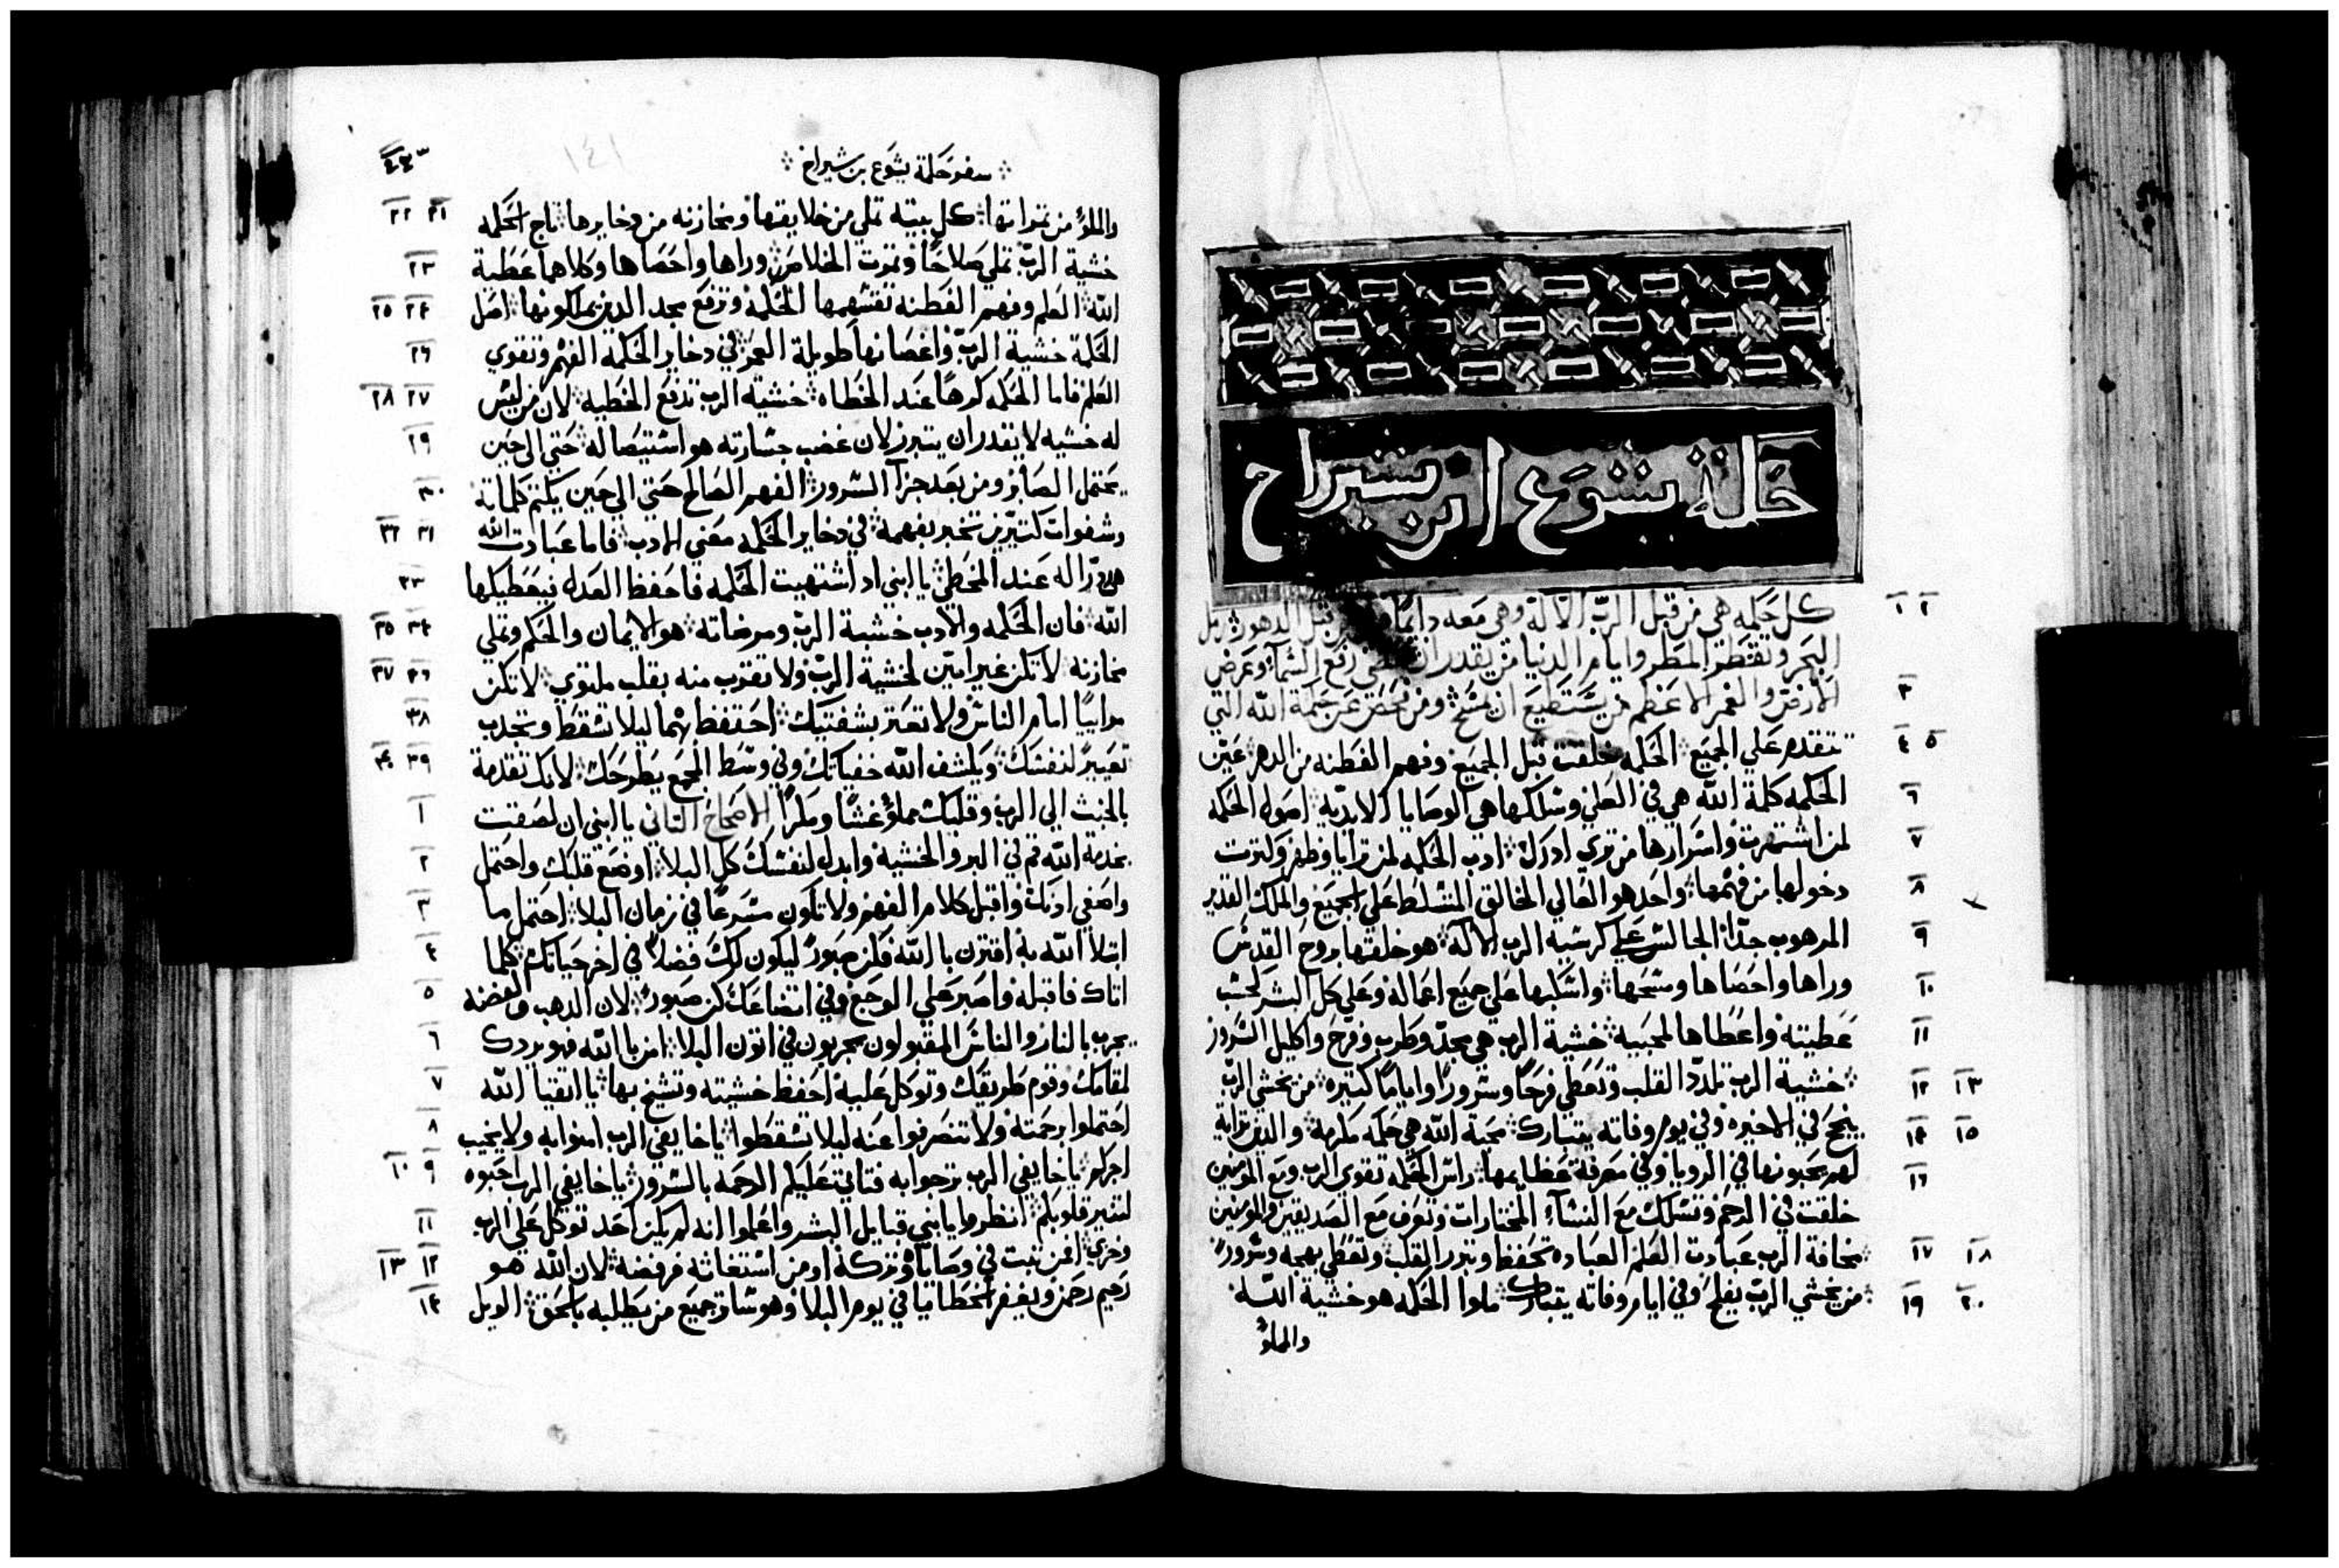 حكمة يشوع ابن شيراخ
كل حكمه هي من قبل الرب الاله وهي معه دايمًا قبل الدهور رمل ١ ٢
البحر ونقط المطر وايام الدنيا من يقدر ان رفع السما وعرض
الارض والغمر الاعظم من يستطيع ان يمسح ومن فحص عن حكمة الله التي ٣
تتقدم علي الجميع الحكمه خلقت قبل الجميع وفهم الفطنه من الدهر عين ٤ ٥
الحكمه كلمة الله هي في العلي وسلكها هي الوصايا الابديه اصول الحكمه ٦
لمن اشتهرت واسرارها من تري ادرك ادب الحكمه لمن ترايا وظهر وكثرت ٧
دخولها من فهمها واحد هو العالي الخالق المسلط علي الجميع والملك القدير ٨
المرهوب جدًا الجالس علي كرسيه الرب الاله هو خلقها بروح القدس ٩
وراها واحصاها ومسحها واسكبها علي جميع اعماله وعلي كل البشر كحسب ١٠
عطيته واعطاها لمحبيه خشية الرب هي مجد وطرب وفرح واكليل السرور ١١
خشية الرب تلدد القلب وتعطي فرحًا وسرورًا وايامًا كتيره من يخشي الرب ١٢ ١٣
ينجح في الاخيره وفي يوم وفاته يتبارك محبة الله هي حكمه مكرمه والذي تراية ١٤ ١٥
لهم يحبونها في الرويا وفي معرفة عظايمها راس الحكمه تقوي الرب ومع المومنين ١٦
خلقت في الرحم وتسلك مع النساء المختارات وتعرف مع الصديقين والمومنين
مخافة الرب عبادت العلم العباده تحفظ وتبرر القلب وتعطي بهجه وسرور ١٧ ١٨
من يخشي الرب يفلح وفي ايام وفاته يتبارك ملوا الحكمه هو خشية الله ١٩ ٢٠
والملو
سفر حكمة يشوع بن شيراخ
١٤١
والملو من تمراتها كل بيته تملي من خلايقها ومخازنه من دخايرها تاج الحكمه ٢١ ٢٢
خشية الرب تملي صلاحًا وتمرت الخلاص وراها واحصاها وكلاهما عطية ٢٣
الله العلم وفهم الفطنه تقسمها الحكمه وترفع مجد الدين يملكونها اصل ٢٤ ٢٥
الحكمة خشية الرب واغصانها طويلة العمر في دخاير الحكمه الفهم وتقوي ٢٦
العلم فاما الحكمه كرهًا عند الخطاه خشية الرب تدفع الخطيه لان من ليس ٢٧ ٢٨
له خشيه لا يقدر ان يتبرر لان غضب جسارته هو استيصاله حتي الي حين ٢٩
يحتمل الصابر ومن بعد جزا السرور الفهم الصالح حتي الي حين يكتم كلماته ٣٠
وشفوات كتيرين تخبر بفهمه في دخاير الحكمه معني الادب فاما عبادت الله ٣١ ٣٢
عند المخطي يا ابني اد اشتهيت الحكمه فاحفظ العدل فيعطيكها ٣٣
الله فان الحكمه والادب خشية الرب ومرضاته هو الايمان والحكم وتملي ٣٤ ٣٥
مخازنه لا تكن غير امين لخشية الرب ولا تقترب منه بقلب ملتوي لا تكن ٣٦ ٣٧
مرابيًا امام الناس ولا تعتر بشفتيك احتفظ بهما ليلا تسقط وتجلب ٣٨
تعييرً لنفسك ويكشف الله خفياتك وفي وسط المجمع يطرحك لانك تقدمة ٣٩ ٤٠
بالخبث الي الرب وقلبك مملوً غشًا ومكرًا الاصحاح التاني يا ابني ان لصقت ١
بخدمة الله قم في البر والخشية وابدل لنفسك كل البلا اوضع قلبك واحتمل ٢
واصغي ادنك واقبل كلام الفهم ولا تكون مسرعًا في زمان البلا احتمل ما ٣
ابتلا الله به اقترن بالله فكن صبورً ليكون لك فضلاً في اخر حياتك كلما ٤
اتاك فاقبله واصبر علي الوجع وفي اتضاعك كن صبورً لان الدهب والفضه ٥
يجرب بالنار والناس المقبولون يجربون في اتون البلا امن بالله فهو يردك ٦
لمقامك وقوم طريقك وتوكل عليه احفظ خشيته وتشيخ بها يا اتقيا الله ٧
احتملوا رحمته ولا تنصرفوا عنه ليلا تسقطوا يا خايفي الرب امنوا به ولا يخيب ٨
اجركم يا خايفي الرب ترجوا به فتاتي عليكم الرحمه بالسرور يا خايفي الرب احبوه ٩ ١٠
لتنير قلوبكم انظروا يا بني قبايل البشر واعلموا انه لم يكن احد توكل علي الرب ١١
وخزي افمن تبت في وصاياه وتركه او من استغاثه فرفضه لان الله هو ١٢ ١٣
رحيم رحمن ويغفر الخطايا في يوم البلا وهو ساتر جميع من يطلبه بالحق الويل ١٤